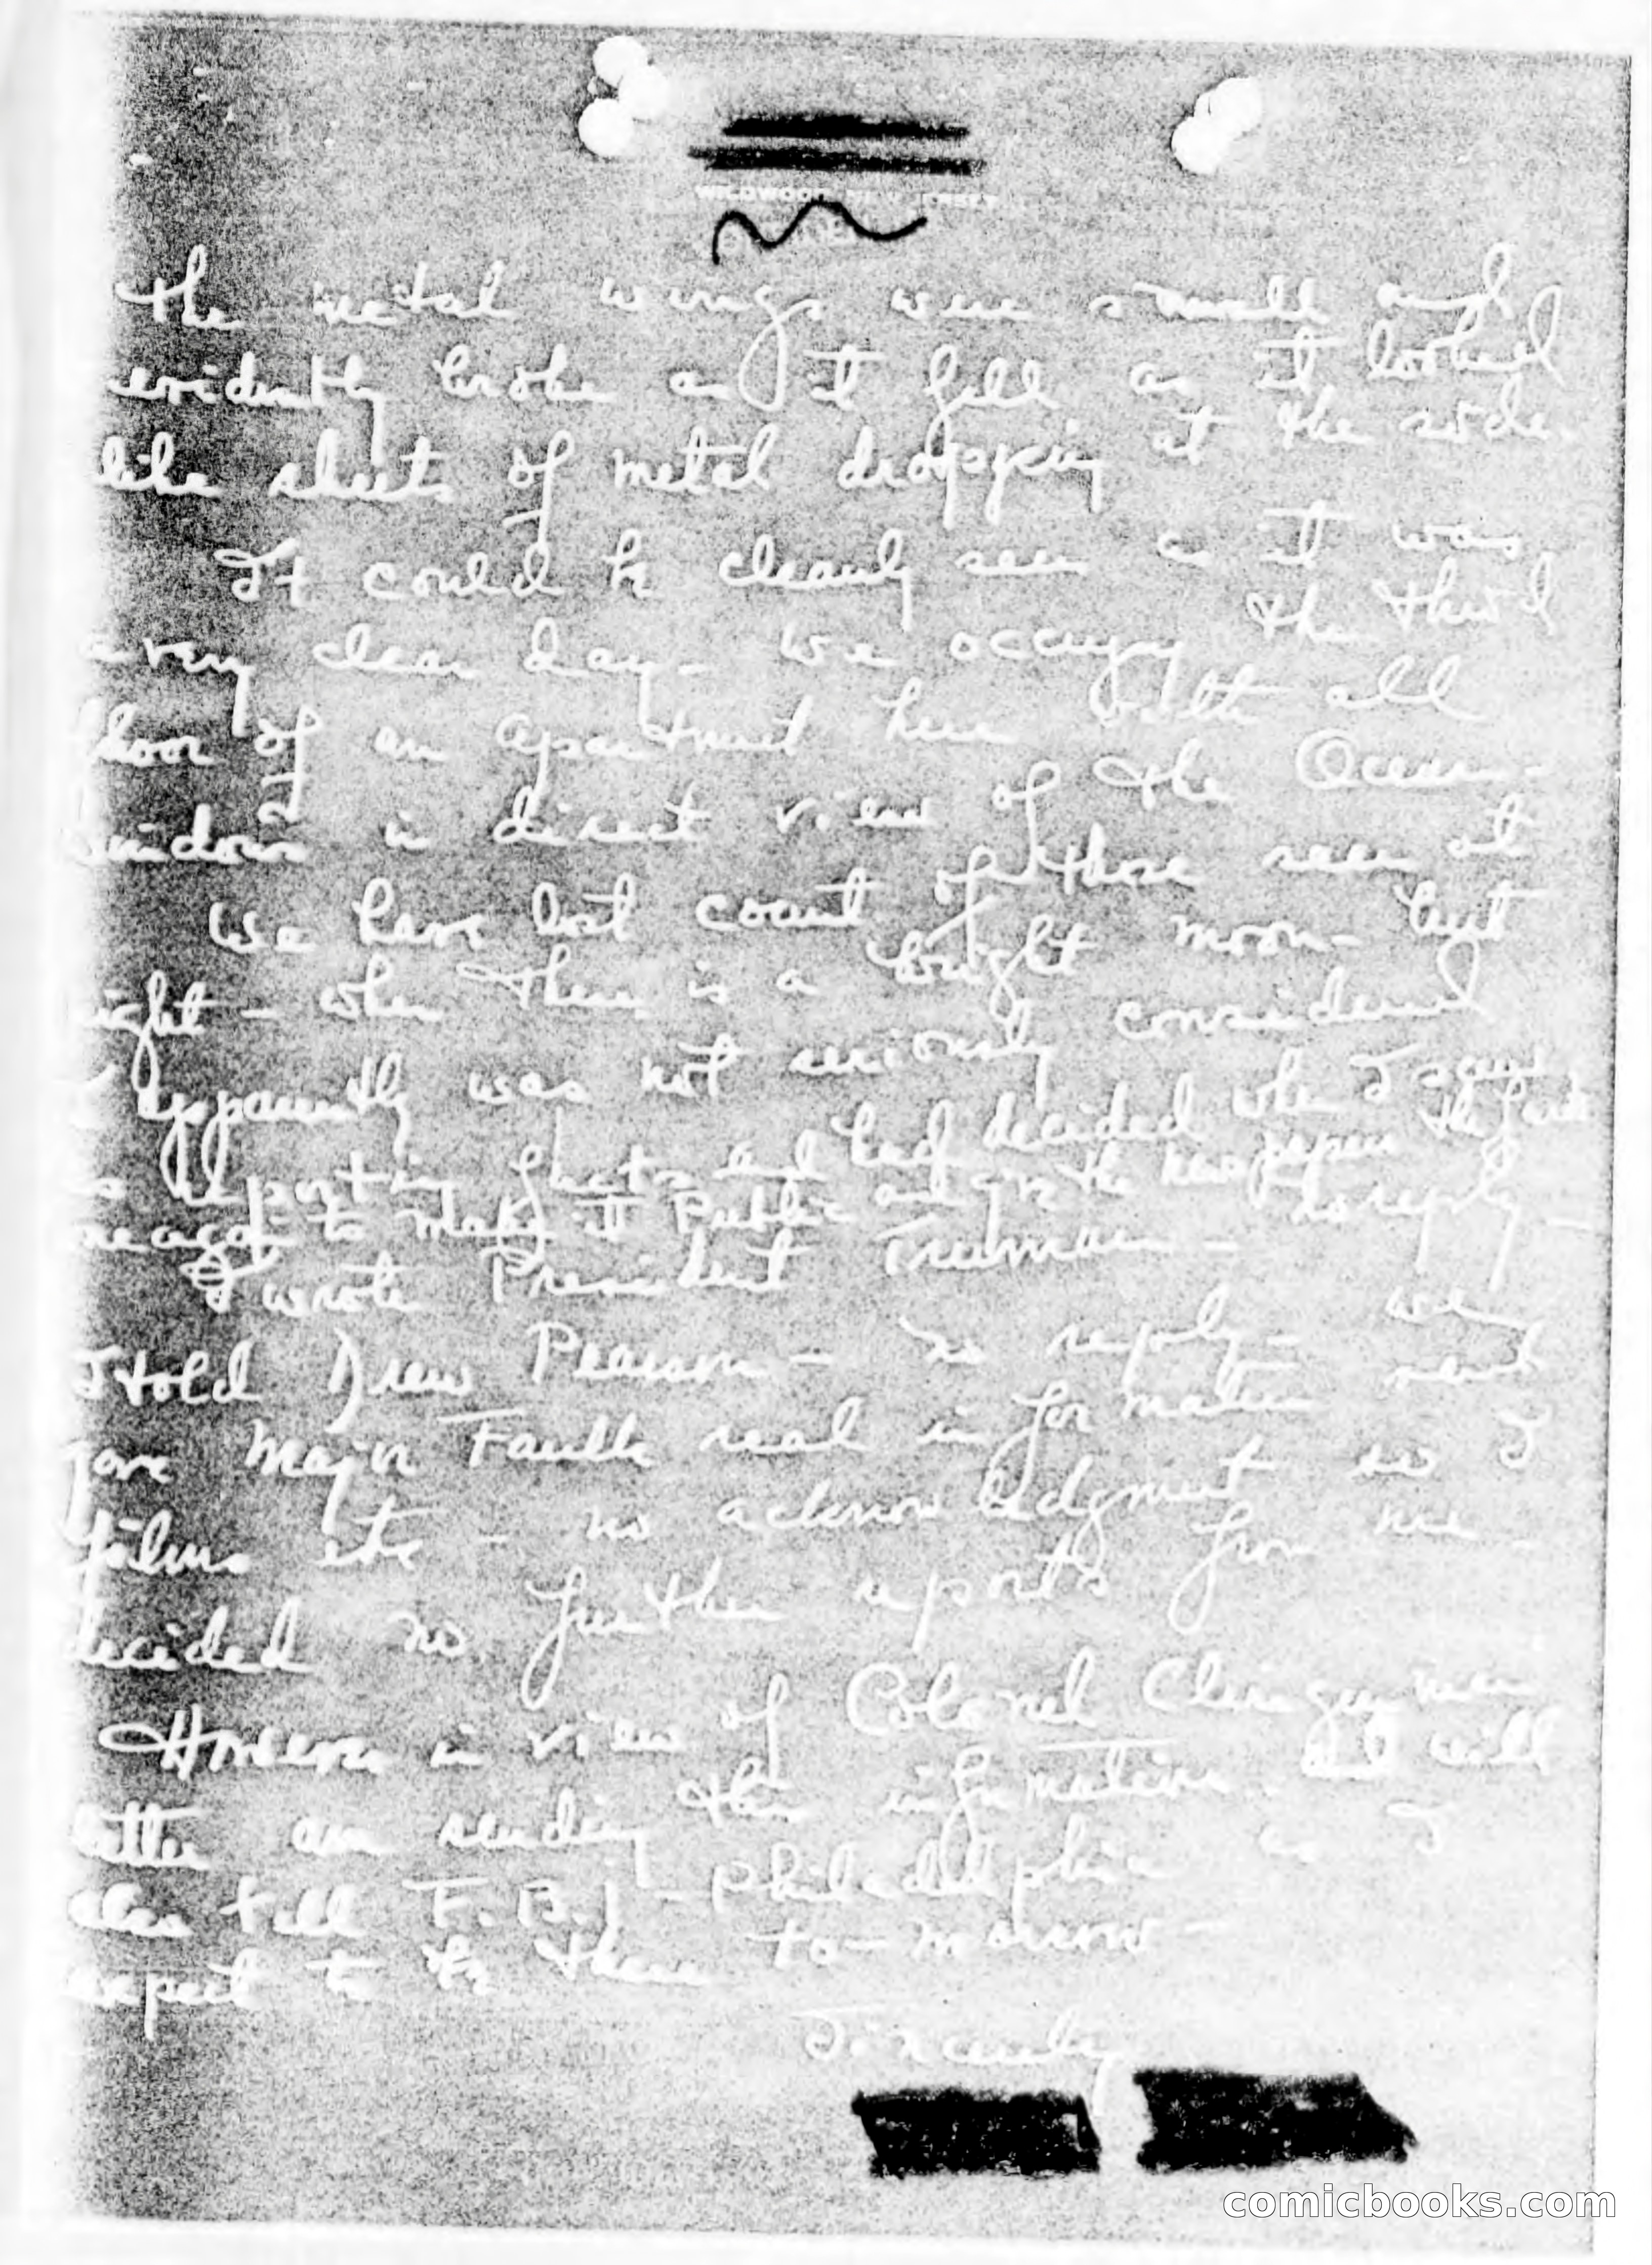 WILDWOOD, NEW JERSEY
the metal wings were small and
evidently broke as it fell as it looked
like sheets of metal dropping at the side.
It could be clearly seen as it was
a very clear day - we occupy the third
floor of an apartment here with all
windows in direct view of the Ocean -
We have lost count of those seen at
night - when there is a bright moon - but
apparently was not seriously considered
reporting facts and had decided when I
to make it Public and give the newspapers the
I wrote President Truman - no reply -
I told Drew Pearson - no reply - we
gave Major Faulk real information sent
films etc - no acknowledgment so I
decided no further reports from me -
However in view of Colonel Clingerman
letter am sending this information and will
also tell F.B.I - Philadelphia as I
expect to be there to-morrow -
Sincerely
comicbooks.com